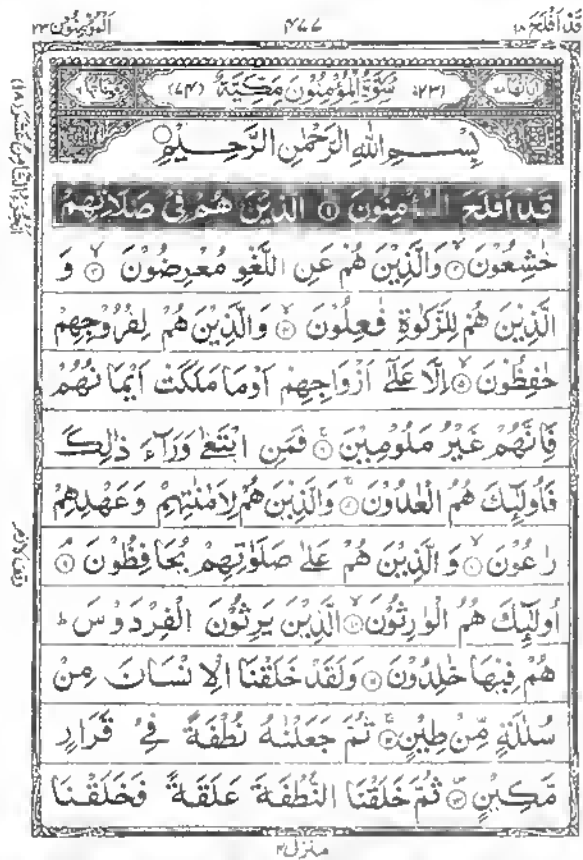 قَدْ اَفْلَحَ ١٨ ٤٧٧ اَلْمُؤْمِنُوْن ٢٣
(٢٣) سُوْرَةُ الْمُؤْمِنُوْنَ مَكِّيَّةٌ (٧٤)
بِسْــمِ اللّٰهِ الرَّحْمٰنِ الرَّحِــيْمِ ○
قَدْ اَفْلَحَ الْمُؤْمِنُوْنَ ۝١ الَّذِيْنَ هُمْ فِيْ صَلَاتِهِمْ
خٰشِعُوْنَ ۝٢ وَالَّذِيْنَ هُمْ عَنِ اللَّغْوِ مُعْرِضُوْنَ ۝٣ وَ
الَّذِيْنَ هُمْ لِلزَّكٰوةِ فٰعِلُوْنَ ۝٤ وَالَّذِيْنَ هُمْ لِفُرُوْجِهِمْ
حٰفِظُوْنَ ۝٥ اِلَّا عَلٰٓى اَزْوَاجِهِمْ اَوْمَا مَلَكَتْ اَيْمَانُهُمْ
فَاِنَّهُمْ غَيْرُ مَلُوْمِيْنَ ۝٦ فَمَنِ ابْتَغٰى وَرَآءَ ذٰلِكَ
فَاُولٰٓئِكَ هُمُ الْعٰدُوْنَ ۝٧ وَالَّذِيْنَ هُمْ لِاَمٰنٰتِهِمْ وَعَهْدِهِمْ
رٰعُوْنَ ۝٨ وَالَّذِيْنَ هُمْ عَلٰى صَلَوٰتِهِمْ يُحَافِظُوْنَ ۝٩
اُولٰٓئِكَ هُمُ الْوٰرِثُوْنَ ۝١٠ الَّذِيْنَ يَرِثُوْنَ الْفِرْدَوْسَ ط
هُمْ فِيْهَا خٰلِدُوْنَ ۝١١ وَلَقَدْ خَلَقْنَا الْاِنْسَانَ مِنْ
سُلٰلَةٍ مِّنْ طِيْنٍ ۝١٢ ثُمَّ جَعَلْنٰهُ نُطْفَةً فِيْ قَرَارٍ
مَّكِيْنٍ ۝١٣ ثُمَّ خَلَقْنَا النُّطْفَةَ عَلَقَةً فَخَلَقْنَا
منزل٤
وقف لازم